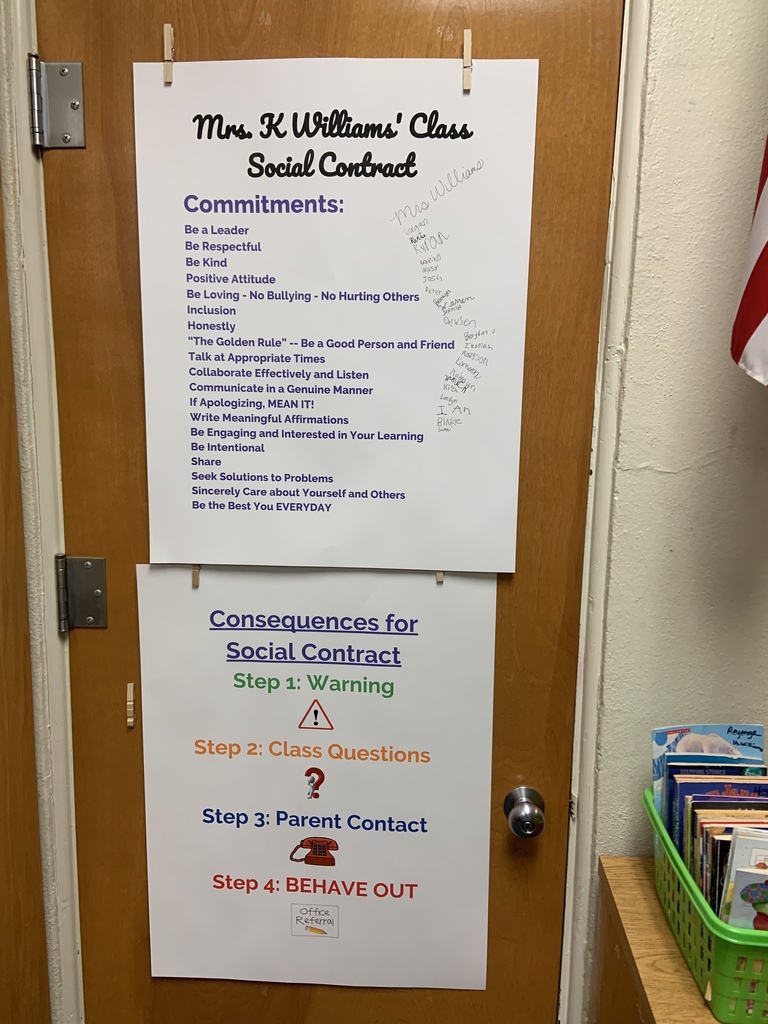 Mrs. K Williams' Class
Social Contract
Commitments:
Be a Leader
Be Respectful
Be Kind
Positive Attitude
Be Loving - No Bullying - No Hurting Others
Inclusion
Honestly
“The Golden Rule” -- Be a Good Person and Friend
Talk at Appropriate Times
Collaborate Effectively and Listen
Communicate in a Genuine Manner
If Apologizing, MEAN IT!
Write Meaningful Affirmations
Be Engaging and Interested in Your Learning
Be Intentional
Share
Seek Solutions to Problems
Sincerely Care about Yourself and Others
Be the Best You EVERYDAY
Mrs Williams
Kyran
Josh
Peter
Madison
I An
Blake
Consequences for
Social Contract
Step 1: Warning
!
Step 2: Class Questions
?
Step 3: Parent Contact
Step 4: BEHAVE OUT
Office
Referral
SCHOLASTIC
Revenge
STEPPING STONES